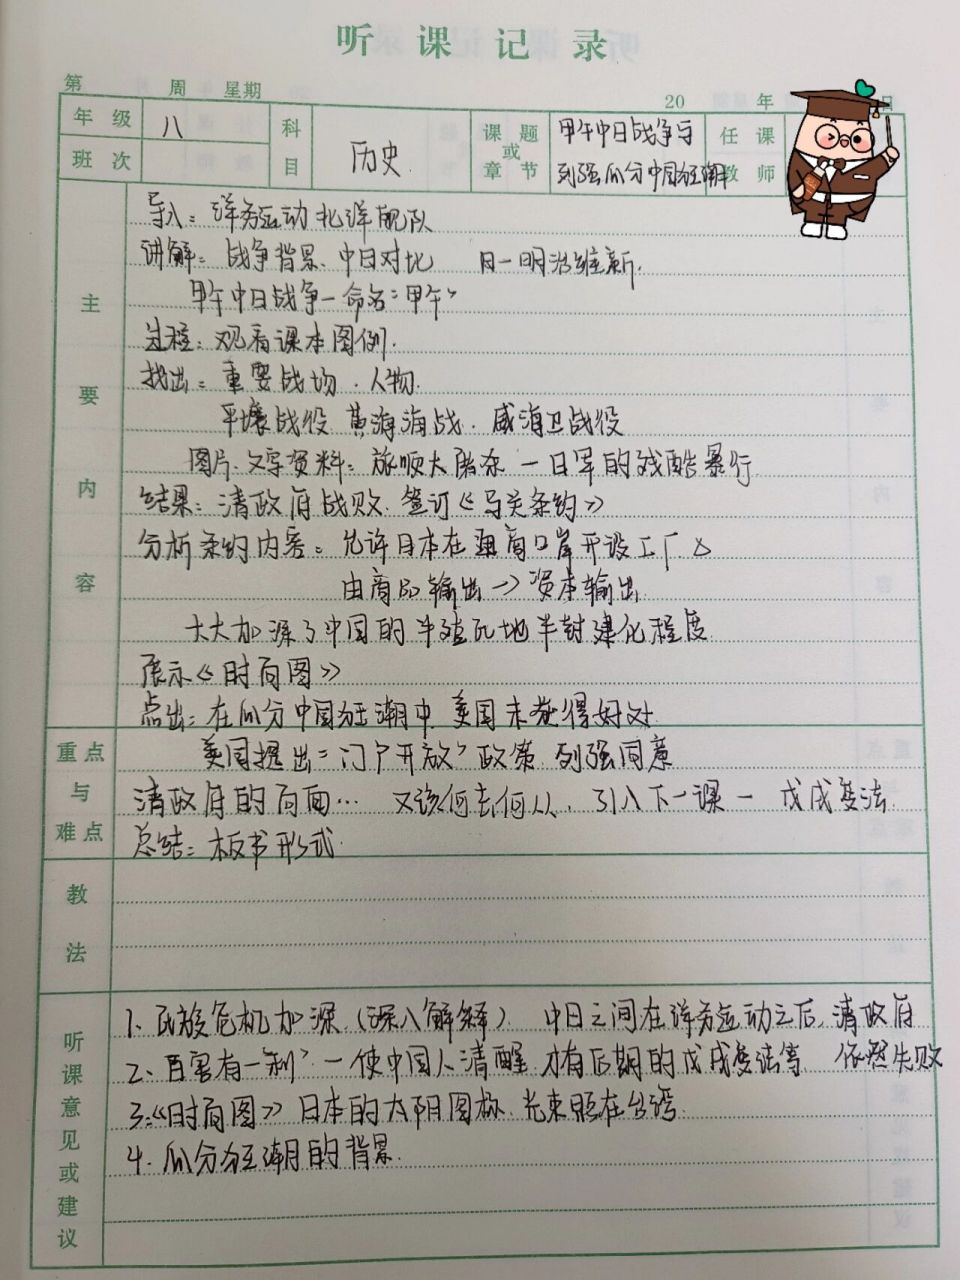 听课记录
第 周 星期 20 年 日
年级 八 科目 历史 课题或章节 甲午中日战争与列强瓜分中国狂潮 任课教师
班次
主要内容
导入：洋务运动北洋舰队
讲解：战争背景、中日对比 日—明治维新.
甲午中日战争—命名"甲午"
过程：观看课本图例.
找出：重要战场．人物.
平壤战役 黄海海战．威海卫战役
图片.文字资料：旅顺大屠杀 — 日军的残酷暴行.
结果：清政府战败. 签订《马关条约》
分析条约内容：允许日本在通商口岸开设工厂△
由商品输出→资本输出.
大大加深了中国的半殖民地半封建化程度.
展示《时局图》
点出：在瓜分中国狂潮中.美国未获得好处.
重点与难点
美国提出"门户开放"政策.列强同意
清政府的局面… 又该何去何从、引入下一课 — 戊戌变法.
总结：板书形式.
教法
听课意见或建议
1、民族危机加深（深入解释） 中日之间在洋务运动之后，清政府
2、百害有一利" — 使中国人清醒.才有后期的戊戌变法等 依然失败
3、《时局图》日本的太阳图标.光束照在台湾.
4. 瓜分狂潮的背景.